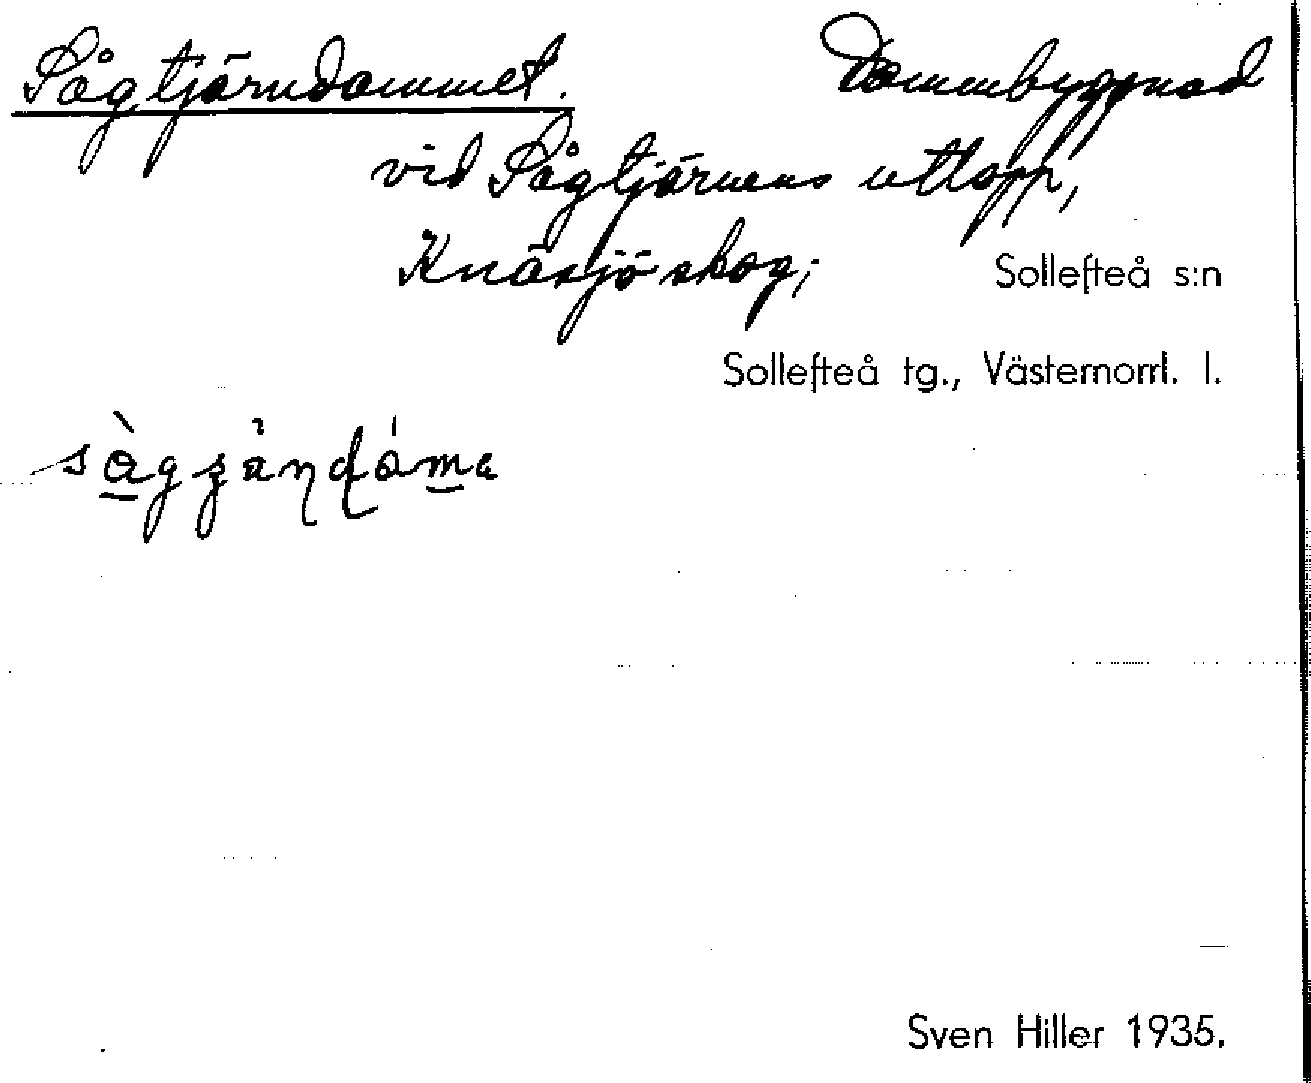 Sågtjärndammet. Dammbyggnad
vid Sågtjärnens utlopp,
Knäsjö skog; Sollefteå s:n
Sollefteå tg., Västernorrl. l.
Sven Hiller 1935.